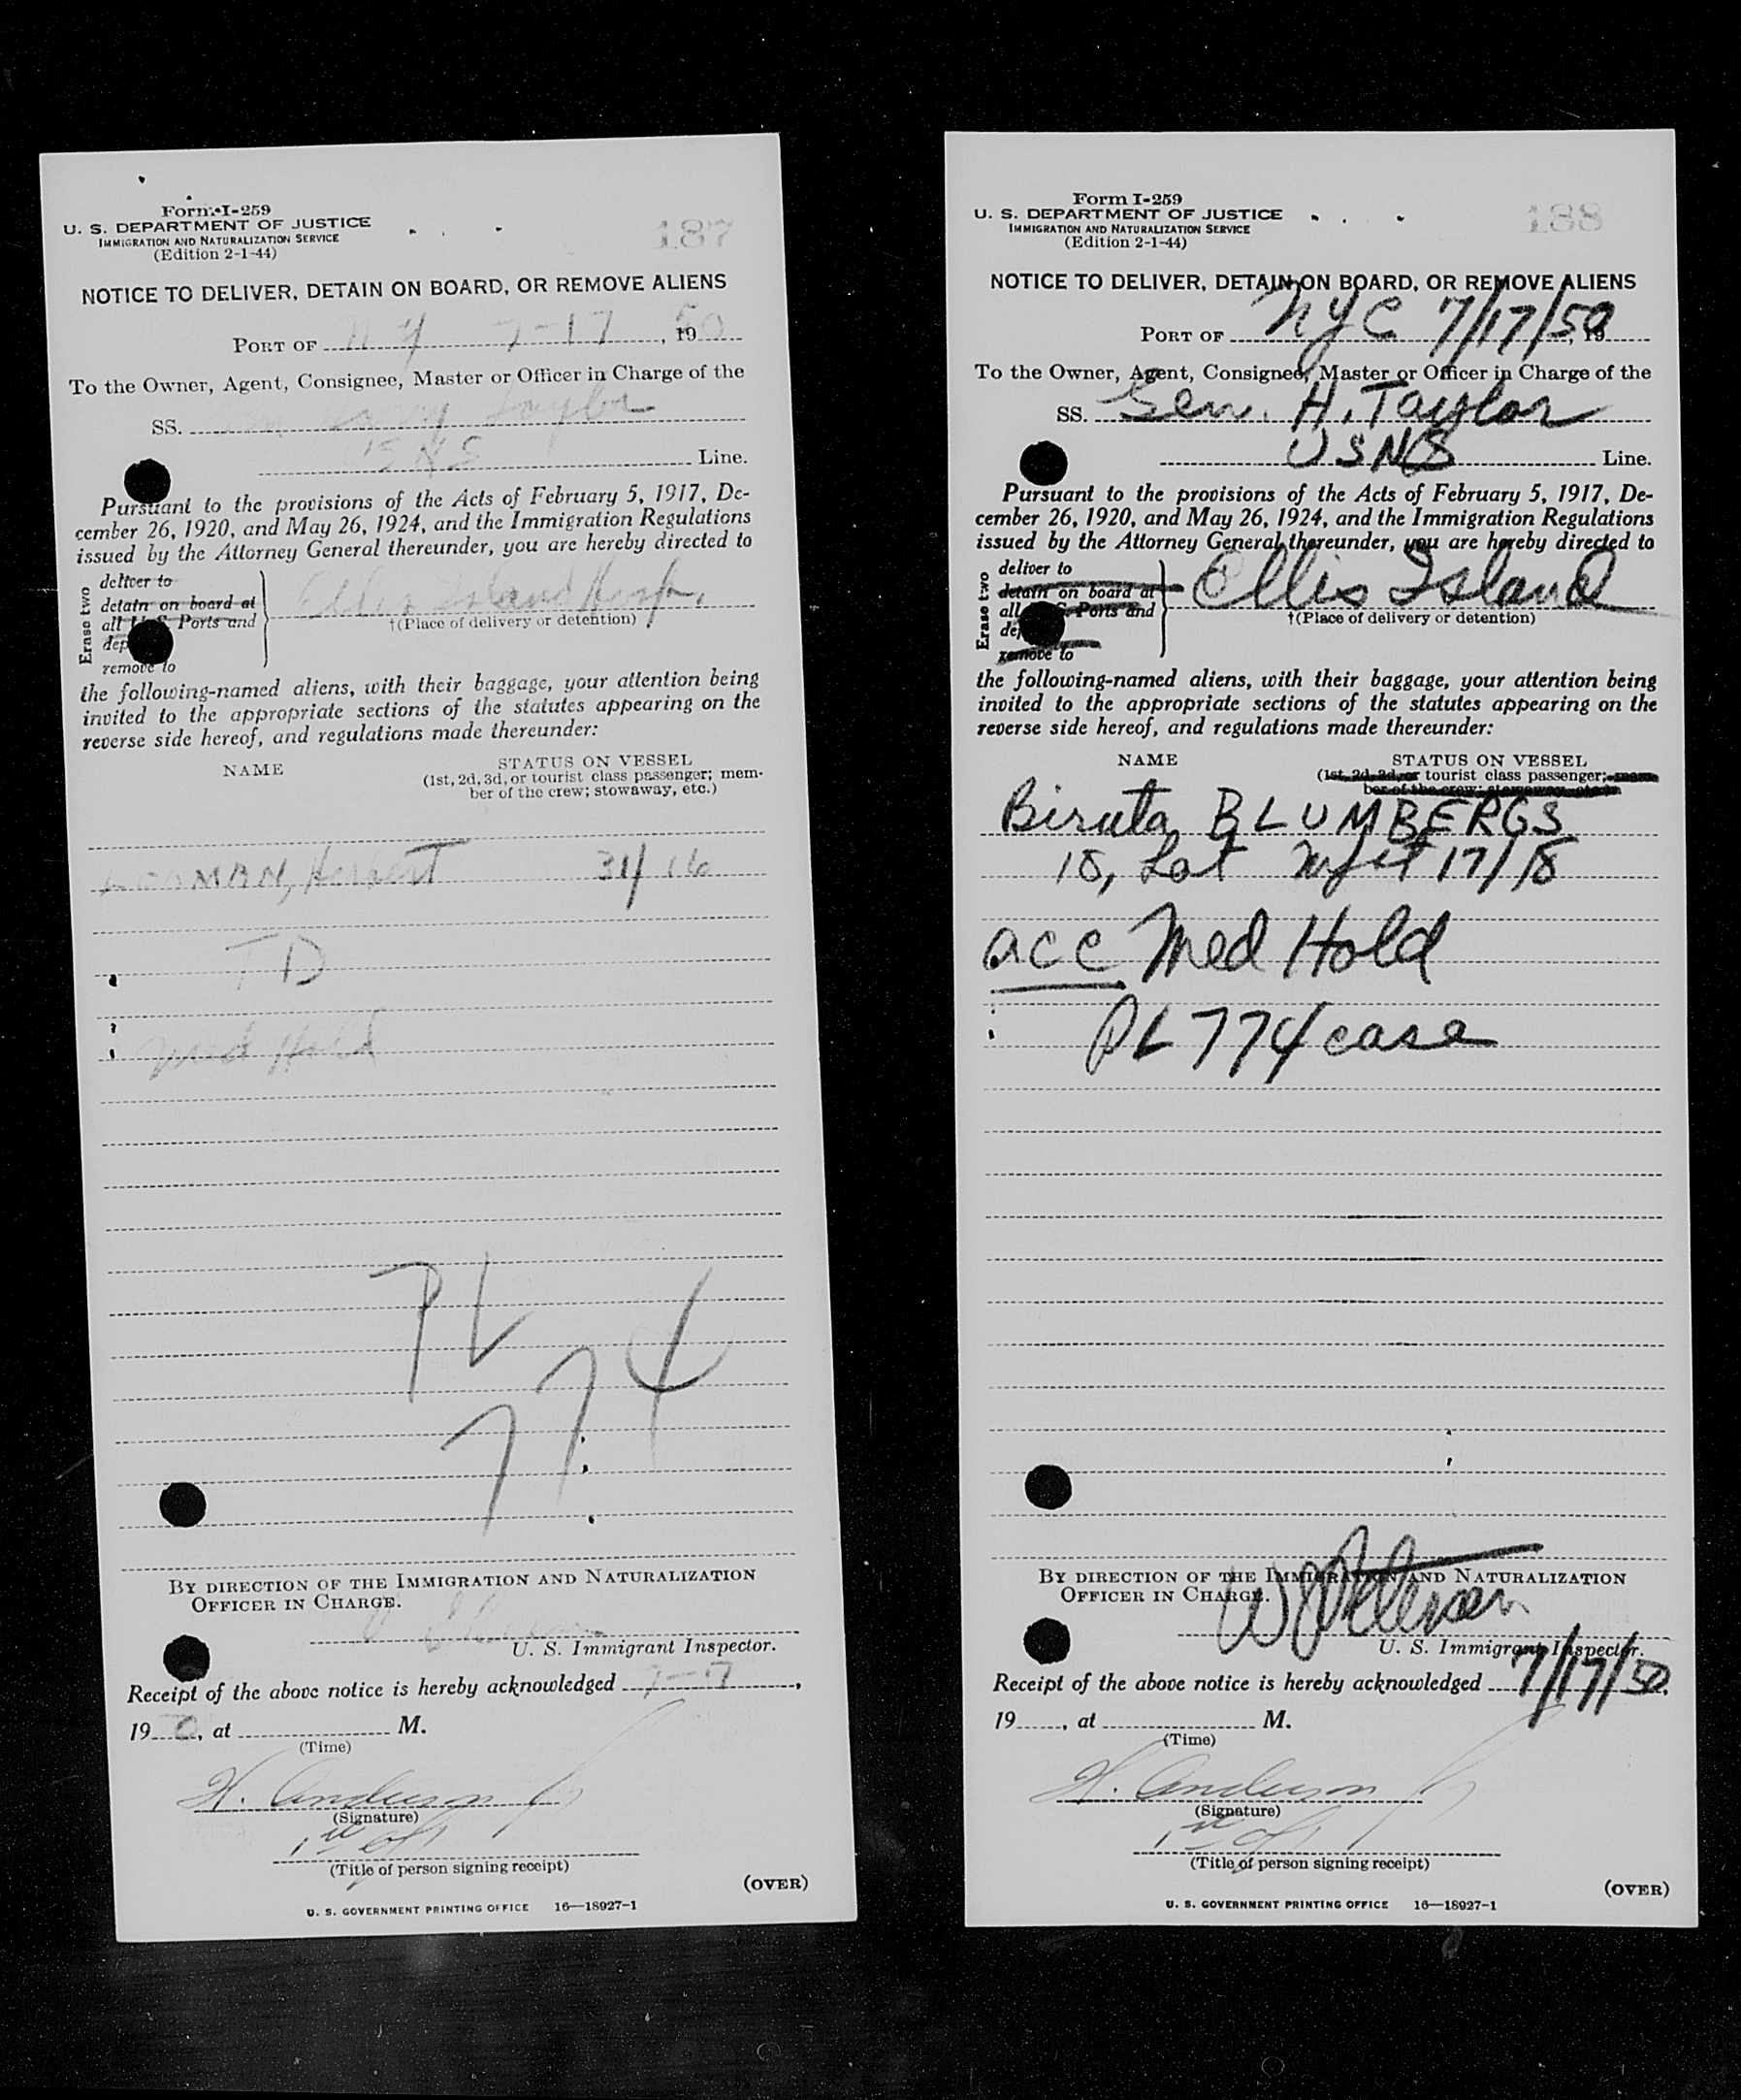 Form I-259
U. S. DEPARTMENT OF JUSTICE
IMMIGRATION AND NATURALIZATION SERVICE
(Edition 2-1-44)
187
NOTICE TO DELIVER, DETAIN ON BOARD, OR REMOVE ALIENS
PORT OF N Y 7-17, 1950
To the Owner, Agent, Consignee, Master or Officer in Charge of the
SS. Taylor
Line.
Pursuant to the provisions of the Acts of February 5, 1917, De-
cember 26, 1920, and May 26, 1924, and the Immigration Regulations
issued by the Attorney General thereunder, you are hereby directed to
Erase two
deliver to
detain on board at
all U.S. Ports and
remove to
Ellis Island Hosp.
†(Place of delivery or detention)
the following-named aliens, with their baggage, your attention being
invited to the appropriate sections of the statutes appearing on the
reverse side hereof, and regulations made thereunder:
NAME STATUS ON VESSEL
(1st, 2d, 3d, or tourist class passenger; mem-
ber of the crew; stowaway, etc.)
Herbert 31/16
TD
Med Hold
PL
774
BY DIRECTION OF THE IMMIGRATION AND NATURALIZATION
OFFICER IN CHARGE.
U. S. Immigrant Inspector.
Receipt of the above notice is hereby acknowledged 7-17,
19 0, at M.
(Time)
H. Anderson
(Signature)
1st Off
(Title of person signing receipt)
(OVER)
U. S. GOVERNMENT PRINTING OFFICE 16—18927-1
Form I-259
U. S. DEPARTMENT OF JUSTICE
IMMIGRATION AND NATURALIZATION SERVICE
(Edition 2-1-44)
188
NOTICE TO DELIVER, DETAIN ON BOARD, OR REMOVE ALIENS
PORT OF NYC 7/17/50, 19
To the Owner, Agent, Consignee, Master or Officer in Charge of the
SS. Gen. H. Taylor
USNS Line.
Pursuant to the provisions of the Acts of February 5, 1917, De-
cember 26, 1920, and May 26, 1924, and the Immigration Regulations
issued by the Attorney General thereunder, you are hereby directed to
Erase two
deliver to
detain on board at
all Ports and
remove to
Ellis Island
†(Place of delivery or detention)
the following-named aliens, with their baggage, your attention being
invited to the appropriate sections of the statutes appearing on the
reverse side hereof, and regulations made thereunder:
NAME STATUS ON VESSEL
(1st, 2d, 3d, or tourist class passenger; mem-
ber of the crew; stowaway, etc.)
Biruta BLUMBERGS
18, Lat Mfst 17/18
acc Med Hold
PL 774 case
BY DIRECTION OF THE IMMIGRATION AND NATURALIZATION
OFFICER IN CHARGE.
U. S. Immigrant Inspector.
Receipt of the above notice is hereby acknowledged 7/17/50,
19, at M.
(Time)
H. Anderson
(Signature)
1st Off
(Title of person signing receipt)
(OVER)
U. S. GOVERNMENT PRINTING OFFICE 16—18927-1